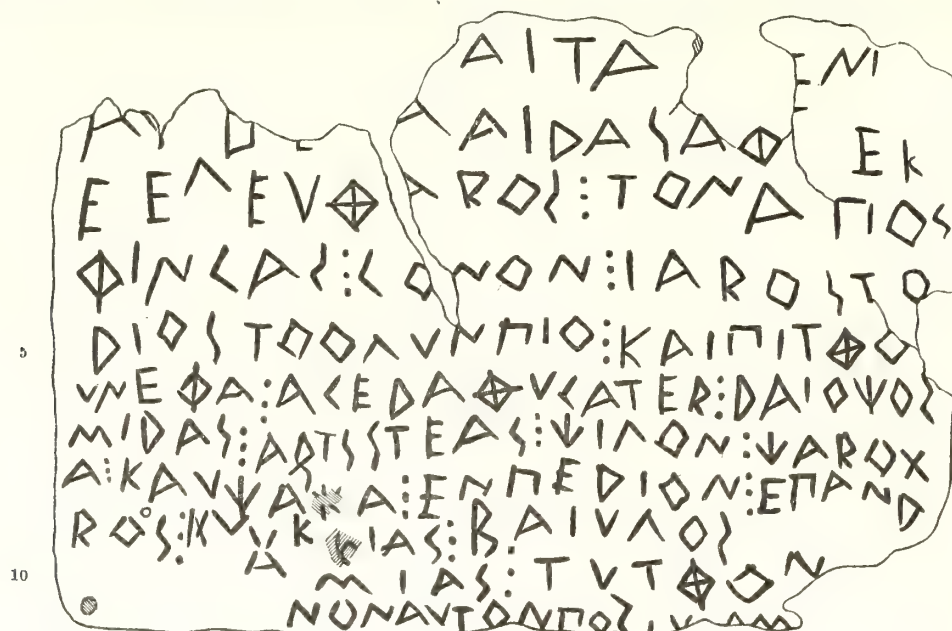 ΑΙΤΑ ΕΝΙ
ΑΙΔΑΣΑΦ ΕΚ
ΕΕΛΕΥΘΑΡΟΣ⋮ΤΟΝΑΠΟΣ
ΦΙΝΓΑΣ⋮ΓΟΝΟΝ⋮ΙΑΡΟΣΤΟ
5 ΔΙΟΣΤΟΟΛΥΝΠΙΟ⋮ΚΑΙΠΙΤΘΟ
ΥΝΕΦΑ⋮ΑΓΕΔΑΘΥΓΑΤΕΡ⋮ΔΑΙΟΨΟΣ
ΜΙΔΑΣ⋮ΑΡΙΣΣΤΕΑΣ⋮ΨΙΛΟΝ⋮ΨΑΡΟΧ
Α⋮ΚΑΥΨΑ Α⋮ΕΝΠΕΔΙΟΝ⋮ΕΠΑΝΔ
ΡΟΣ⋮ ΚΙΑΣ⋮ΒΑΙΥΛΟΣ
10 ΜΙΑΣ⋮ΤΥΤΘΟΝ
ΝΟΝΑΥΤΟΝΠΟΣ